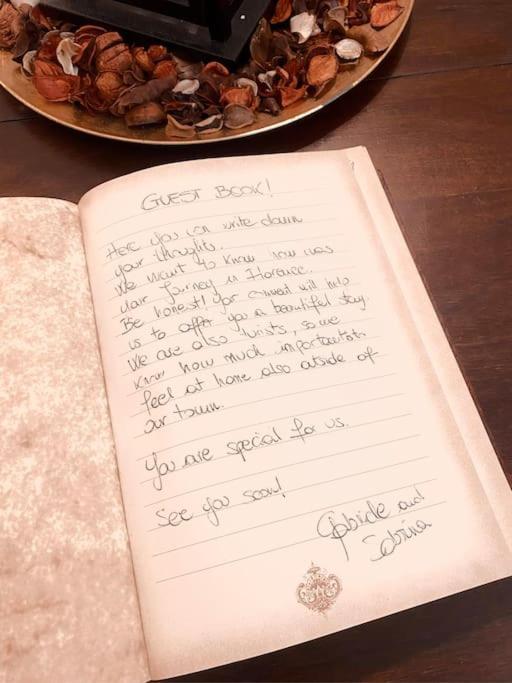 GUEST BOOK!
Here you can write down
your thoughts.
We want to know how was
your journey in Florence.
Be honest! Your comment will help
us to offer you a beautiful stay.
We are also turists, so we
know how much important is
feel at home also outside of
our town.
You are special for us.
See you soon!
Gabriele and
Sabrina